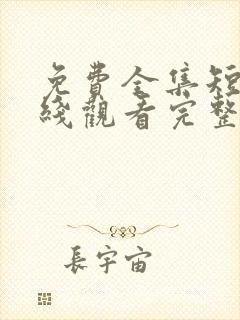 免費全集短
綫觀看完整
長宇宙